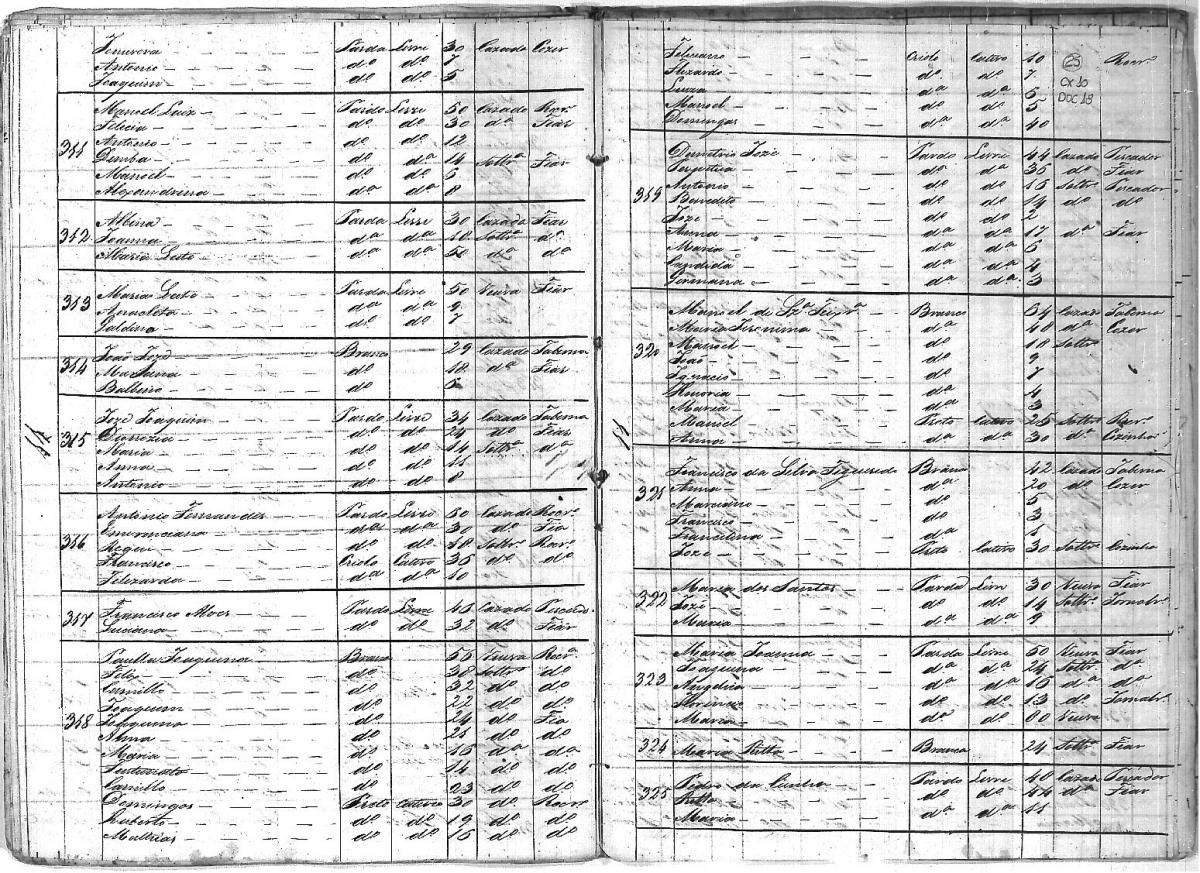 Parda Livre 30 Cazada Cozer
Antonio dº dº 7
Joaquim dº dº 5
311
Manoel Luiz Pardo Livre 50 Cazado Rocrº
Felicia dº dº 30 dª Fiar
Antonio dº dº 12
dº dª 14 Soltrª Fiar
Manoel dº dº 5
Alexandrina dª dª 8
312
Albina Parda Livre 30 Cazada Fiar
Joanna dª dª 40 Soltrª dº
Maria dª dª 50 dº dª
313
Maria Parda Livre 50 Veuva Fiar
Anacleta dª dª 9
Galdina dº dº 7
314
João Jozé Branco 29 Cazado Taberna
Mariana dº 18 dª Fiar
Balbino dº
315
Jozé Joaquim Pardo Livre 34 Cazado Taberna
dº dº 24 dº Fiar
Maria dº dº 14 Soltrª dª
Anna dº dº 11
Antonio dº dº 8
316
Antonio Fernandes Pardo Livre 50 Cazado Rocrº
dª 30 dº Fia
dº dº 18 Soltrº Rocrº
Francisco Criolo Cativo 35 dº dº
Felizarda dª dª 10
317
Francisco Alves Pardo Livre 45 Cazado
Luciana dº dº 32 dº Fiar
318
Paulla Joaquina Branca 55 Veuva Rocrª
Felix dº 30 Soltrº dº
Camillo dº 32 dº dº
Joaquim dº 22 dº dº
Joaquina dº 24 dº Fia
Anna dº 21 dº dº
Maria dº 15 dª dª
dº 14 dº dº
Camillo dº 23 dº dº
Domingos Preto Cativo 30 dº Rocrº
Ruberto dº dº 19 dº dº
Mathias dº dº 16 dº dº
25
CX 10
DOC 18
Feliciano Criolo Cativo 10 Rocrº
Elizardo dº dº 7
Luiza dª dª 6
Manoel dº dº 5
Domingas dª dª 40
319
Demetrio Jozé Pardo Livre 44 Cazado Pescador
dº dª 35 dº Fiar
Antonio dº dº 15 Soltrº Pescador
Benedito dº dº 14 dº dº
Jozé dº dº 2
Anna dª dª 17 dª Fiar
Maria dª dª 6
Candida dª dª 4
Germana dª dª 3
320
Manoel de Branco 34 Cazado Taberna
Maria Jeronima dª 40 dª Cozer
Manoel dº 18 Soltrº
João dº 9
Ignacio dº 7
Honoria dª 4
Maria dª 3
Manoel Preto Cativo 25 Soltrº Rocrº
Anna dª dª 30 dª
321
Francisco da Silva Figueredo Branco 42 Cazado Taberna
Anna dª 20 dº Cozer
Marciano dº 5
Francisco dº 3
Francelina dª 1
Jozé Preto Cativo 30 Soltrº Cozinha
322
Maria dos Santos Parda Livre 30 Veuva Fiar
Jozé dº dº 14 Soltrº Jornalrº
Maria dª dª 9
323
Maria Joanna Parda Livre 50 Veuva Fiar
Joaquina dª dª 24 Soltrª dª
Angelica dª dª 15 dª dª
Florencio dº dº 13 dº Jornalrº
Maria dª dª 60 Veuva
324
Maria Ritta Branca 24 Soltrª Fiar
325
Pedro da Cunha Pardo Livre 40 Cazado Pescador
Ritta dª dº 44 dª Fiar
Maria dª dª 11